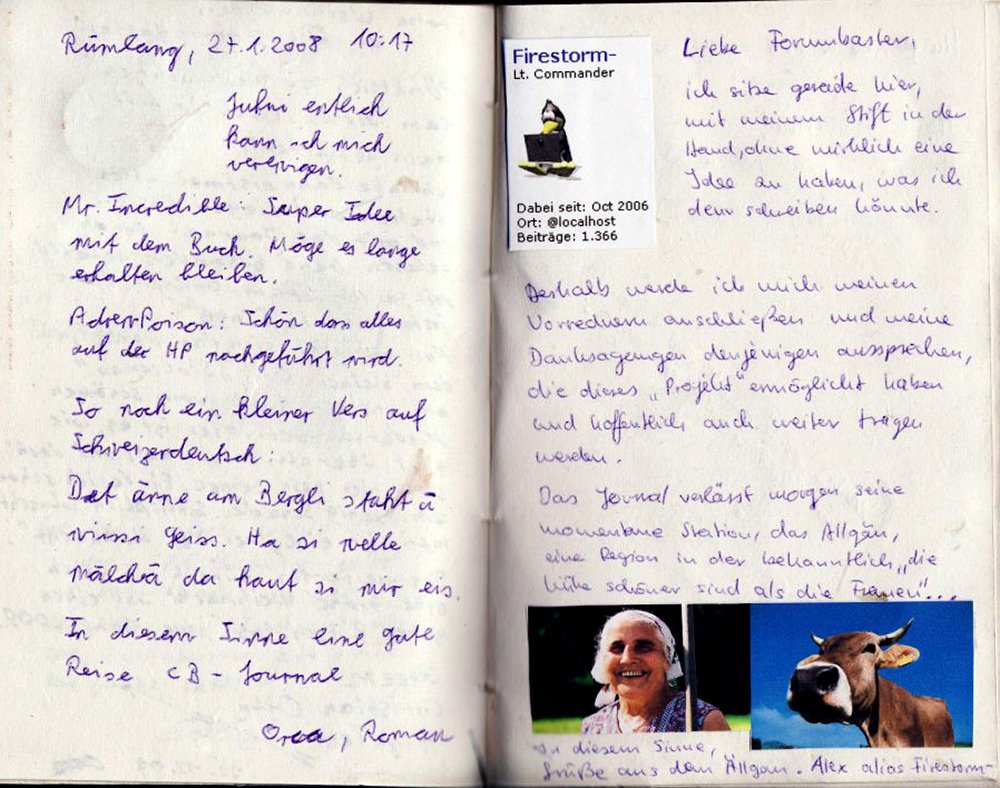 Rümlang, 27.1.2008 10:17
Juhui entlich
kann ich mich
verewigen.
Mr. Incredible: Super Idee
mit dem Buch. Möge es lange
erhalten bleiben.
AdvenPoison: Schön dass alles
auf der HP nachgeführt wird.
So noch ein kleiner Vers auf
Schweizerdeutsch:
Det änne am Bergli staht ä
wiissi Geiss. Ha si welle
mälchä da haut si mir eis.
In diesem Sinne eine gute
Reise CB-Journal
Orca, Roman
Firestorm-
Lt. Commander
Dabei seit: Oct 2006
Ort: @localhost
Beiträge: 1.366
Liebe Forumbaster,
ich sitze gerade hier,
mit meinem Stift in der
Hand, ohne wirklich eine
Idee zu haben, was ich
denn schreiben könnte.
Deshalb werde ich mich meinen
Vorrednern anschließen und meine
Danksagungen denjenigen aussprechen,
die dieses „Projekt" ermöglicht haben
und hoffentlich auch weiter tragen
werden.
Das Journal verlässt morgen seine
momentane Station, das Allgäu,
eine Region in der bekanntlich „die
Kühe schöner sind als die Frauen"...
In diesem Sinne,
Grüße aus dem Allgäu. Alex alias Firestorm-